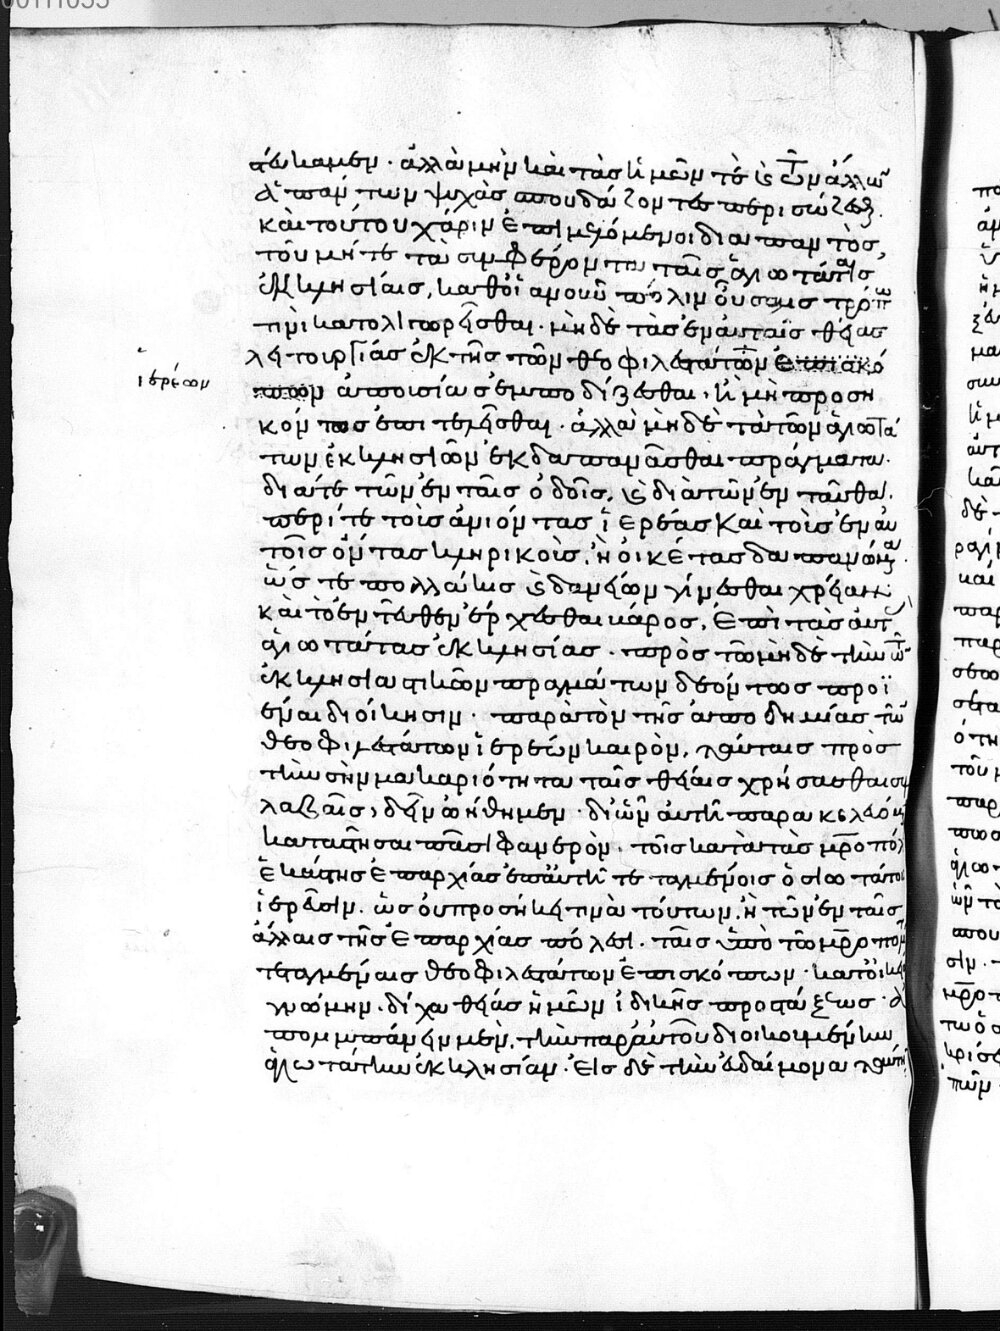 00111035
τεύκαμεν. ἀλλὰ μὴν καὶ τὰς ἡμῶν τε καὶ τῶν ἄλλων
ἁπάντων ψυχὰς σπουδάζοντες περισώζειν
καὶ τούτου χάριν ἐπιμελόμενοι διὰ παντὸς,
τοῦ μήτε τὰ συμφέροντα ταῖς ἁγιωτάταις
ἐκκλησίαις, καθ' οἱανοῦν πόλιν οὔσαις τρόπω
τινὶ κατολιγωρεῖσθαι. μηδὲ τὰς ἐν αὐταῖς θείας
λειτουργίας ἐκ τῆς τῶν θεοφιλεστάτων ἐπισκό
πων ἀπουσίας ἐμποδίζεσθαι, ἢ μὴ προση
ἱερέων
κόντως ἐπιτελεῖσθαι. ἀλλὰ μηδὲ τὰ τῶν ἁγιωτά
των ἐκκλησιῶν ἐκδαπανᾶσθαι πράγματα.
διά τε τῶν ἐν ταῖς ὁδοῖς, καὶ διὰ τῶν ἐνταῦθα,
περί τε τοὺς ἀνιόντας ἱερέας καὶ τοὺς ἐν αὐ
τοῖς ὄντας κληρικοὺς, ἢ οἰκέτας δαπανῶν,
ὥς τε πολλάκις καὶ δανείων γίνεσθαι χρείαν
καὶ τὸ ἐντεῦθεν ἔρχεσθαι βάρος, ἐπὶ τὰς αὐτ
ἁγιωτάτας ἐκκλησίας. πρὸς τῶ μηδὲ τὴν τῶν
ἐκκλησιαστικῶν πραγμάτων δεόντως προϊ
έναι διοίκησιν. παρὰ τὸν τῆς ἀποδημίας τῶν
θεοφιλεστάτων ἱερέων καιρὸν, ταύταις πρὸς
τὴν σὴν μακαριότητα ταῖς θείαις χρήσασθαι συλ
λαβαῖς, δεῖν ὠήθημεν. δι' ὧν αὐτῆ παρακελευόμεθα
καταστῆσαι πᾶσι φανερὸν. τοῖς κατὰ τὰς μροπόλ
ἑκάστης ἐπαρχίας ἐπ' αὐτῆ τεταγμένοις ὁσιωτάτοις
ἱερεῦσιν. ὡς οὐ προσήκει τινὰ τούτων, ἢ τῶν ἐν ταῖς
ἄλλαις τῆς ἐπαρχίας πόλεσι. ταῖς ὑπὸ τῶν μροπολ
τεταγμέναις θεοφιλεστάτων ἐπισκόπων. κατ' οἰκείαν
γνώμην. δίχα θείας ἡμῶν ἰδικῆς προστάξεως. ἀ
πολιμπάνειν μὲν, τὴν παρ' αὐτοῦ διοικουμένην
ἁγιωτάτην ἐκκλησίαν. εἰς δὲ τὴν εὐδαίμονα ταύτην